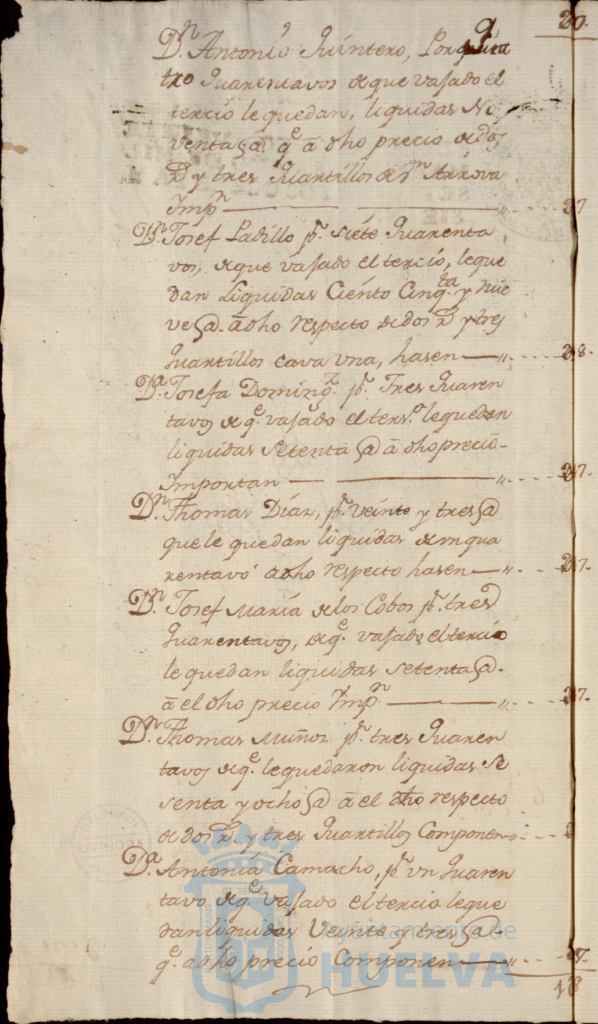 20.
Dn. Antonio Quintero, Por qua
tro quarentavos de que vajado el
tercio le quedan, liquidas No
venta @. qe. â dho precio de dos
Rs. y tres quartillos de rn. Arrova
Impn. 27
Dn. Josef Padillo pr. siete quarenta
vos, de que vajado el tercio, leque
dan Liquidas Ciento Cinqta. y nue
ve @. â dho respecto de dos rs. y tres
quartillos cava vna, hasen 28.
Da. Josefa Doming.z pr. Tres quaren
tavos de qe. vajado el terso. le quedan
liquidas setenta @ â dho precio
Importan 27.
Dn. Thomas Díaz, pr. veinte y tres @
que le quedan liquidas de un qua
rentavo âdho respecto hasen 27.
Dn. Josef María de los Cobos pr. tres
quarentavos, de qe. vajado el tercio
le quedan liquidas setenta @.
â el dho precio Impn. 27.
Dn. Thomas Muñoz pr. tres quaren
tavos de qe. le quedaron liquidas se
senta y ocho @ â el dho respecto
de dos rs. y tres quartillos Componen
Da. Antonia Camacho, pr. vn quaren
tavo de qe. vajado el tercio le que
dan liquidas Veinte y tres @.
qe. a dho precio Componen 27.
18
Ayuntamiento de
HUELVA